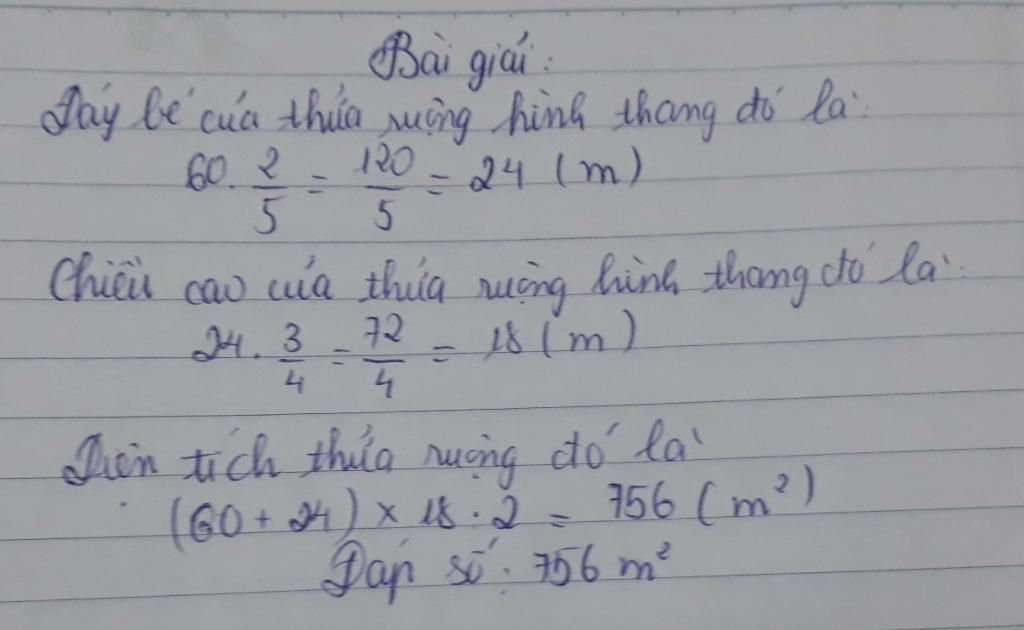 Bài giải:
Đáy bé của thửa ruộng hình thang đó là:
60. 2/5 = 120/5 = 24 (m)
Chiều cao của thửa ruộng hình thang đó là:
24. 3/4 = 72/4 = 18 (m)
Diện tích thửa ruộng đó là
(60 + 24) × 18 : 2 = 756 (m²)
Đáp số: 756 m²